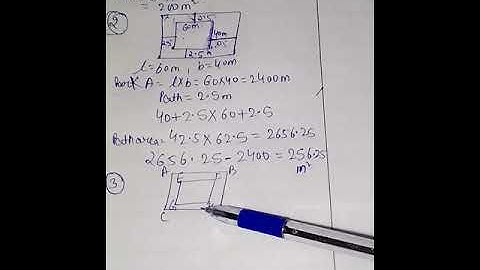 = 200m²
② 2.5
60m 40m
2.5 2.5
2.5m
l = 60m, b = 40m
Park A = l×b = 60×40 = 2400m
Path = 2.5m
40+2.5 × 60+2.5
Path area = 42.5 × 62.5 = 2656.25
2656.25 - 2400 = 256.25
m²
③ A B
C